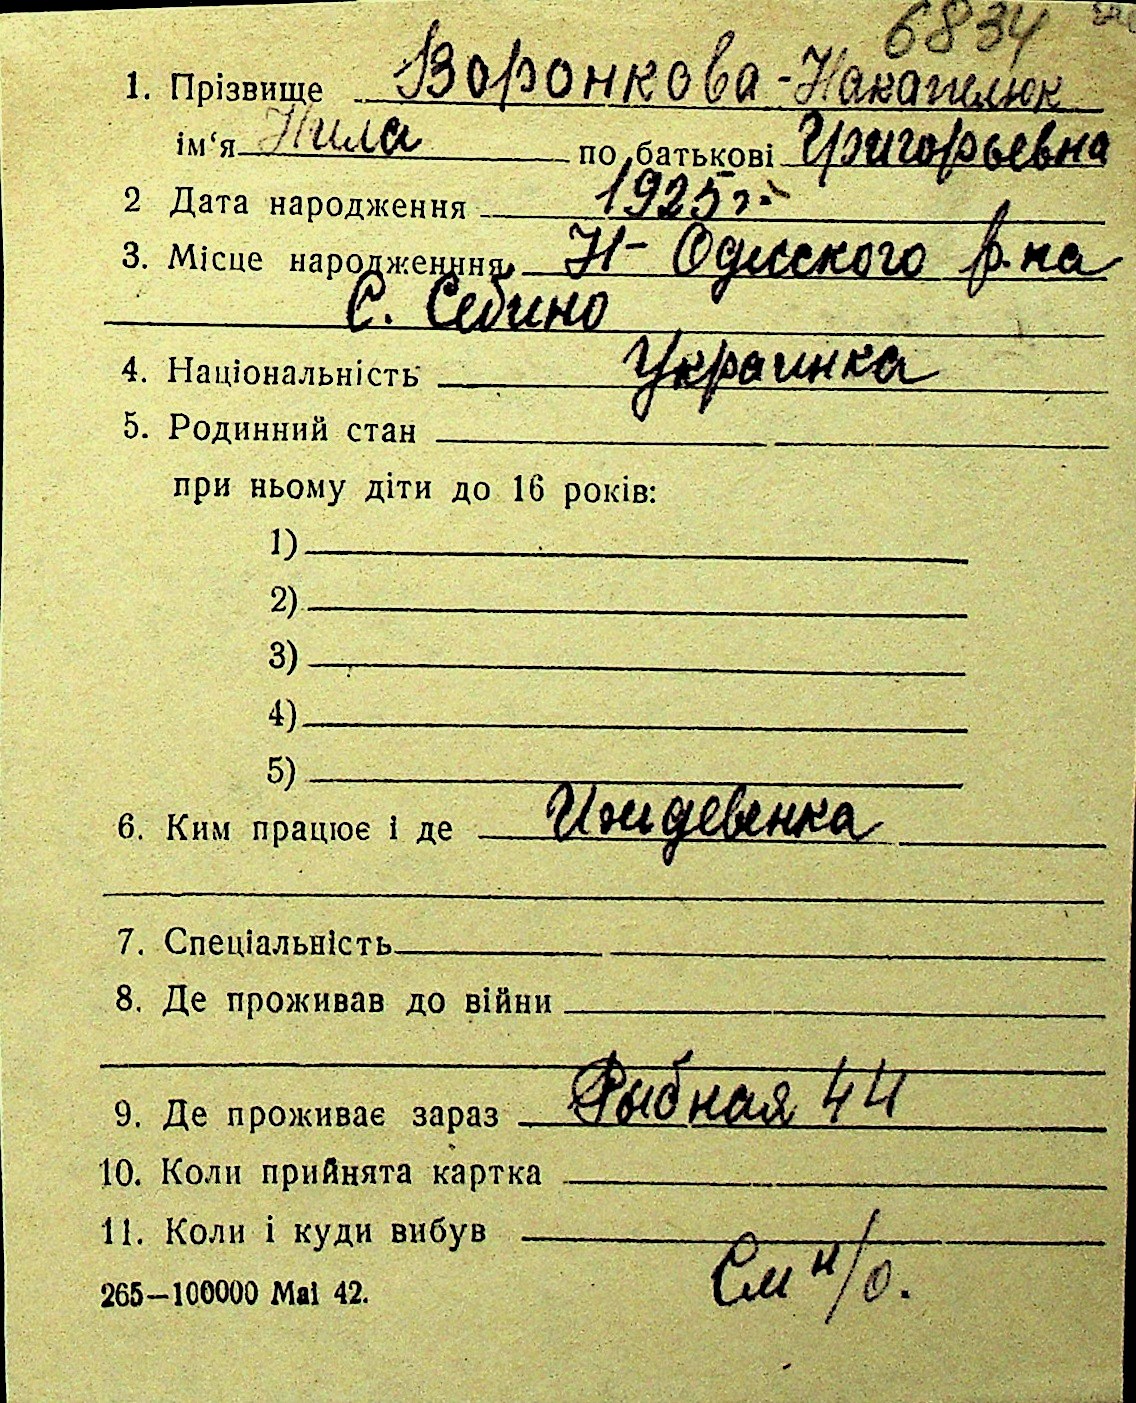 6834
1. Прізвище Воронкова-Накапилюк
ім‘я Нила по батькові Григорьевна
2 Дата народження 1925 г.
3. Місце народженння Н-Одесского р-на
С. Себино
4. Національність Украинка
5. Родинний стан
при ньому діти до 16 років:
1)
2)
3)
4)
5)
6. Ким працює і де Иждевенка
7. Спеціальність
8. Де проживав до війни
9. Де проживає зараз Рыбная 44
10. Коли прийнята картка
11. Коли і куди вибув
265—100000 Mai 42. См н/о.